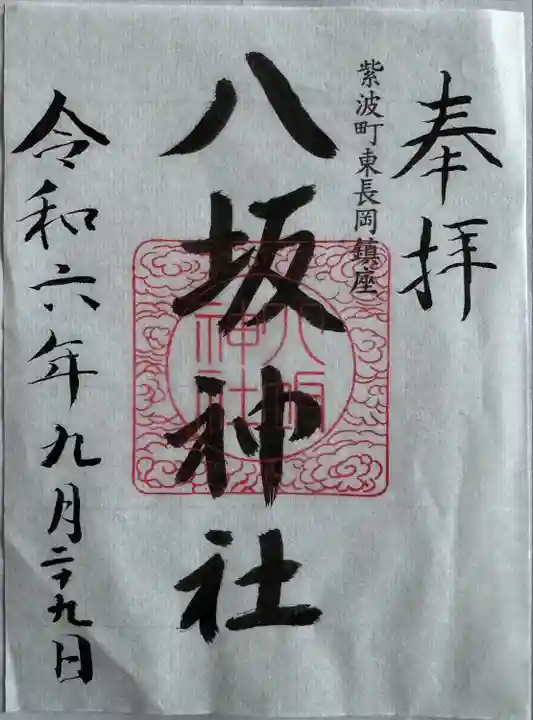 奉拝
紫波町東長岡鎮座
八坂神社
八坂
神社
令和六年九月二十九日